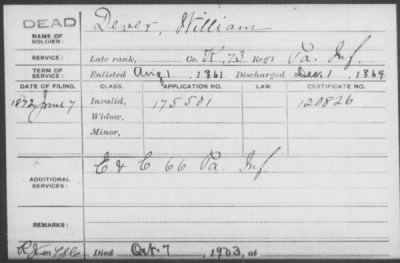 DEAD
NAME OF SOLDIER: Dever, William
SERVICE: Late rank, Co. K, 73 Reg't Pa. Inf.
TERM OF SERVICE: Enlisted Aug 1, 1861 Discharged Dec. 1, 1864
DATE OF FILING. CLASS. APPLICATION NO. LAW. CERTIFICATE NO.
1872 June 7 Invalid, 175501 120826
Widow,
Minor,
ADDITIONAL SERVICES: E & C 66 Pa. Inf.
REMARKS:
Died Oct. 7, 1903, at